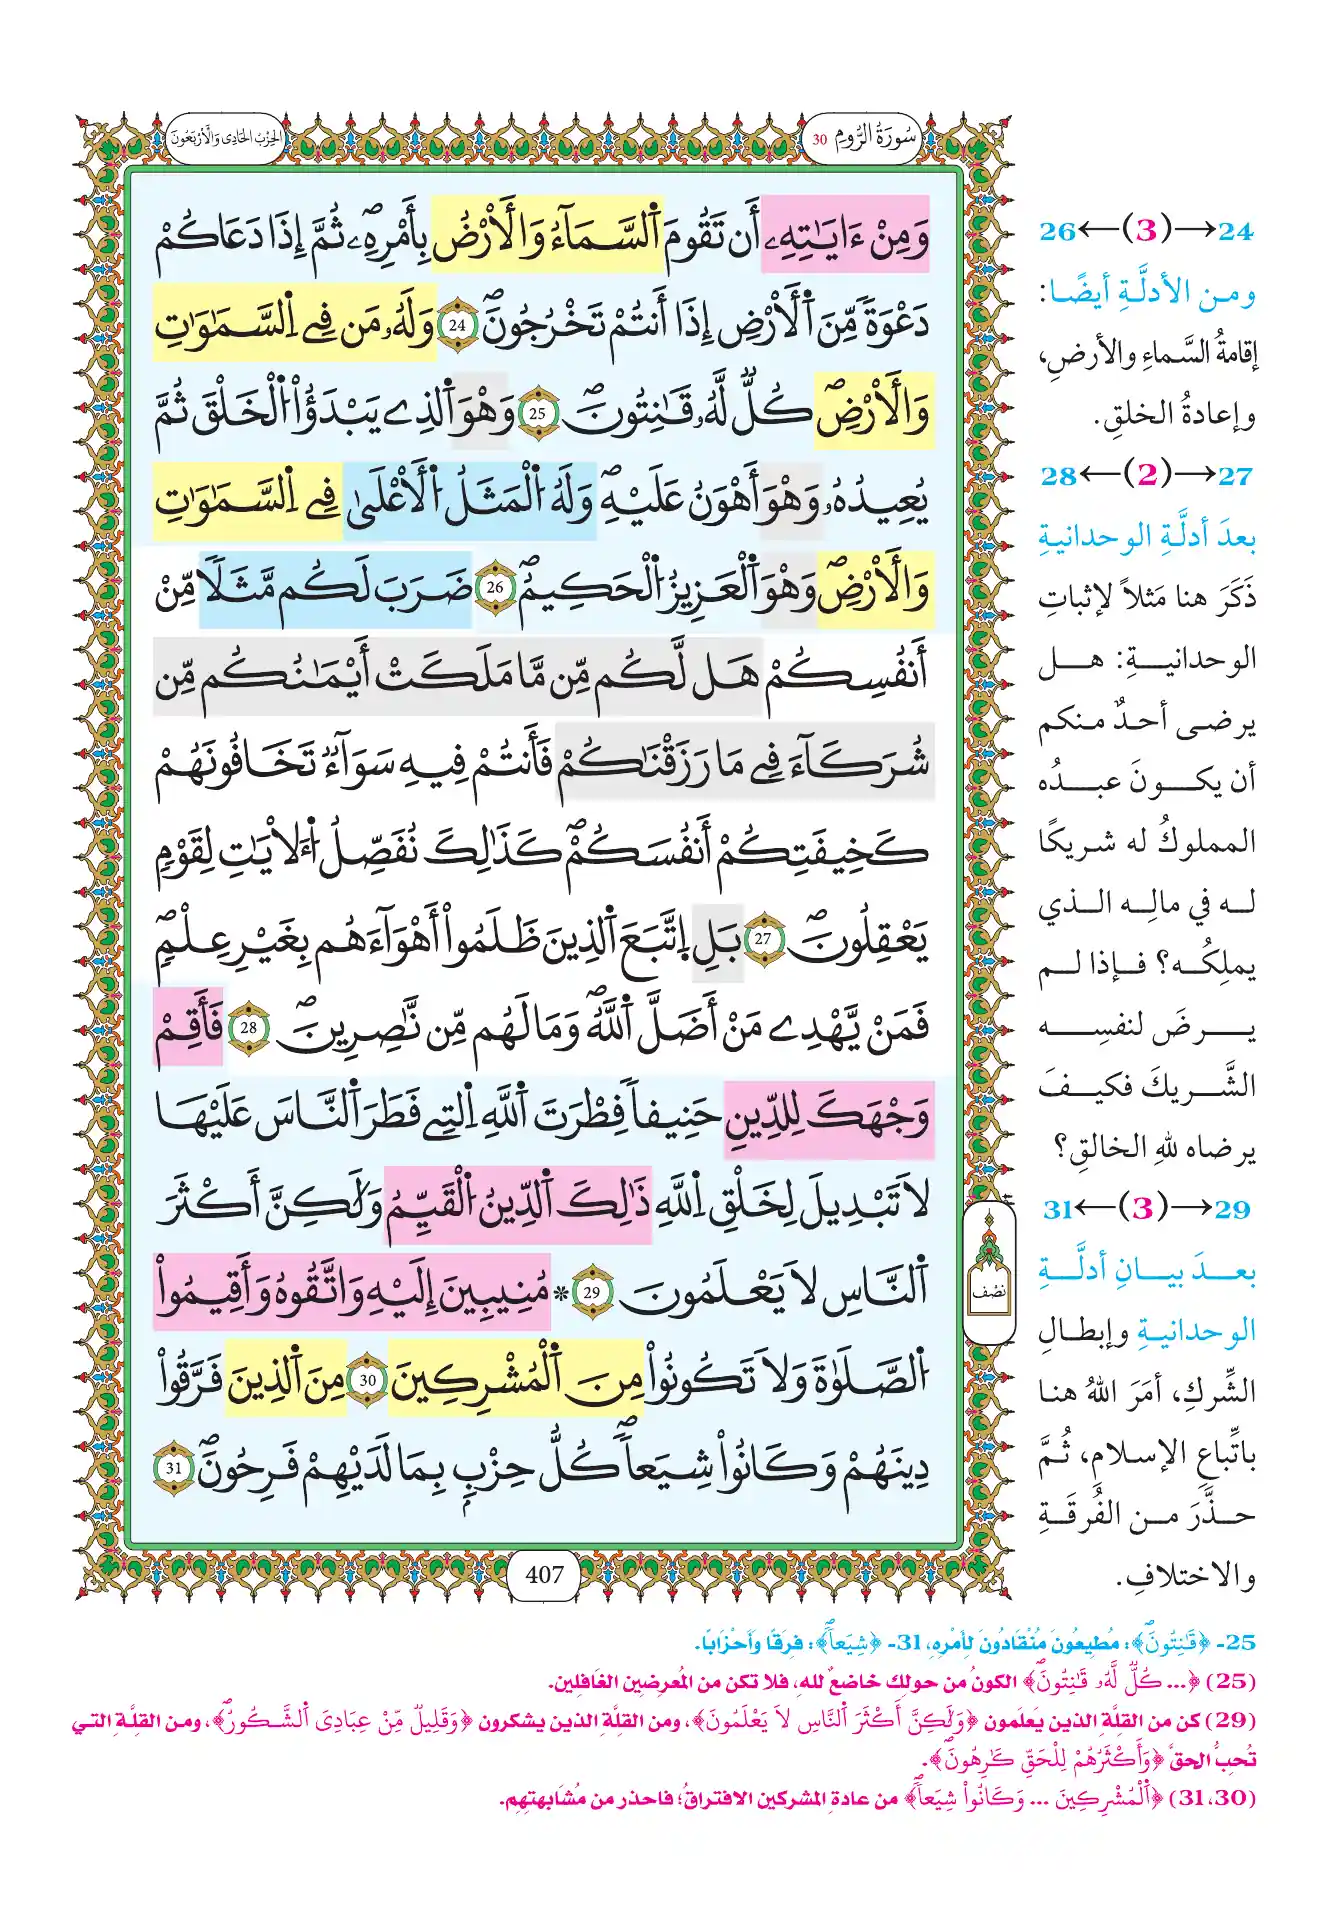 سُورَةُ الرُّومِ 30
الحِزْبُ الحَادِى وَالَأَرْبَعُونَ
وَمِنْ ءَايَٰتِهِۦ أَن تَقُومَ اَ۬لسَّمَآءُ وَالَارْضُ بِأَمْرِهِۦۖ ثُمَّ إِذَا دَعَاكُمْ
دَعْوَةٗ مِّنَ اَ۬لَارْضِ إِذَا أَنتُمْ تَخْرُجُونَۖ 24 وَلَهُۥ مَن فِے اِ۬لسَّمَٰوَٰتِ
وَالَارْضِۖ كُلّٞ لَّهُۥ قَٰنِتُونَۖ 25 وَهْوَ اَ۬لذِے يَبْدَؤُاْ اُ۬لْخَلْقَ ثُمَّ
يُعِيدُهُۥ وَهْوَ أَهْوَنُ عَلَيْهِۖ وَلَهُ اُ۬لْمَثَلُ اُ۬لَاعْلَىٰ فِے اِ۬لسَّمَٰوَٰتِ
وَالَارْضِۖ وَهْوَ اَ۬لْعَزِيزُ اُ۬لْحَكِيمُۖ 26 ضَرَبَ لَكُم مَّثَلاٗ مِّنَ
اَنفُسِكُمْ هَل لَّكُم مِّن مَّا مَلَكَتَ اَيْمَٰنُكُم مِّن
شُرَكَآءَ فِے مَا رَزَقْنَٰكُمْ فَأَنتُمْ فِيهِ سَوَآءٞ تَخَافُونَهُمْ
كَخِيفَتِكُمْ أَنفُسَكُمْۖ كَذَٰلِكَ نُفَصِّلُ اُ۬لَايَٰتِ لِقَوْمٖ
يَعْقِلُونَۖ 27 بَلِ اِ۪تَّبَعَ اَ۬لذِينَ ظَلَمُواْ أَهْوَآءَهُم بِغَيْرِ عِلْمٖۖ
فَمَنْ يَّهْدِے مَنْ أَضَلَّ اَ۬للَّهُۖ وَمَا لَهُم مِّن نَّٰصِرِينَۖ 28 فَأَقِمْ
وَجْهَكَ لِلدِّينِ حَنِيفاٗ فِطْرَتَ اَ۬للَّهِ اِ۬لتِے فَطَرَ اَ۬لنَّاسَ عَلَيْهَا
لَا تَبْدِيلَ لِخَلْقِ اِ۬للَّهِ ذَٰلِكَ اَ۬لدِّينُ اُ۬لْقَيِّمُ وَلَٰكِنَّ أَكْثَرَ
اَ۬لنَّاسِ لَا يَعْلَمُونَ 29 * مُنِيبِينَ إِلَيْهِ وَاتَّقُوهُ وَأَقِيمُواْ
اُ۬لصَّلَوٰةَ وَلَا تَكُونُواْ مِنَ اَ۬لْمُشْرِكِينَ 30 مِنَ اَ۬لذِينَ فَرَّقُواْ
دِينَهُمْ وَكَانُواْ شِيَعاٗۖ كُلُّ حِزْبِۢ بِمَا لَدَيْهِمْ فَرِحُونَۖ 31
نصْف
407
24→(3)←26
ومن الأدلَّةِ أيضًا:
إقامةُ السَّماءِ والأرضِ،
وإعادةُ الخلقِ.
27→(2)←28
بعدَ أدلَّةِ الوحدانيةِ
ذَكَرَ هنا مَثلاً لإثباتِ
الوحدانيةِ: هل
يرضى أحدٌ منكم
أن يكونَ عبدُه
المملوكُ له شريكًا
له في مالِه الذي
يملِكُه؟ فإذا لم
يرضَ لنفسِه
الشَّريكَ فكيفَ
يرضاه للهِ الخالقِ؟
29→(3)←31
بعدَ بيانِ أدلَّةِ
الوحدانيةِ وإبطالِ
الشِّركِ، أمَرَ اللهُ هنا
باتِّباعِ الإسلامِ، ثُمَّ
حذَّرَ من الفُرقَةِ
والاختلافِ.
25- ﴿قَٰنِتُونَۖ﴾: مُطيعُونَ مُنْقَادُونَ لأمْرِهِ، 31- ﴿شِيَعاٗۖ﴾: فِرَقًا وَأحْزَابًا.
(25) ﴿... كُلّٞ لَّهُۥ قَٰنِتُونَۖ﴾ الكونُ من حولِك خاضعٌ لله، فلا تكن من المُعرضِين الغَافلِين.
(29) كن من القلَّةِ الذين يَعلَمون ﴿وَلَٰكِنَّ أَكْثَرَ اَ۬لنَّاسِ لَا يَعْلَمُونَ﴾، ومن القلَّةِ الذين يشكرون ﴿وَقَلِيلٞ مِّنْ عِبَادِىَ اَ۬لشَّكُورُۖ﴾، ومن القلَّةِ التي
تُحبُّ الحقَّ ﴿وَأَكْثَرُهُمْ لِلْحَقِّ كَٰرِهُونَۖ﴾.
(31،30) ﴿اَ۬لْمُشْرِكِينَ ... وَكَانُواْ شِيَعاٗۖ﴾ من عادةِ المشركين الافتراقُ؛ فاحذر من مُشابهتِهِم.